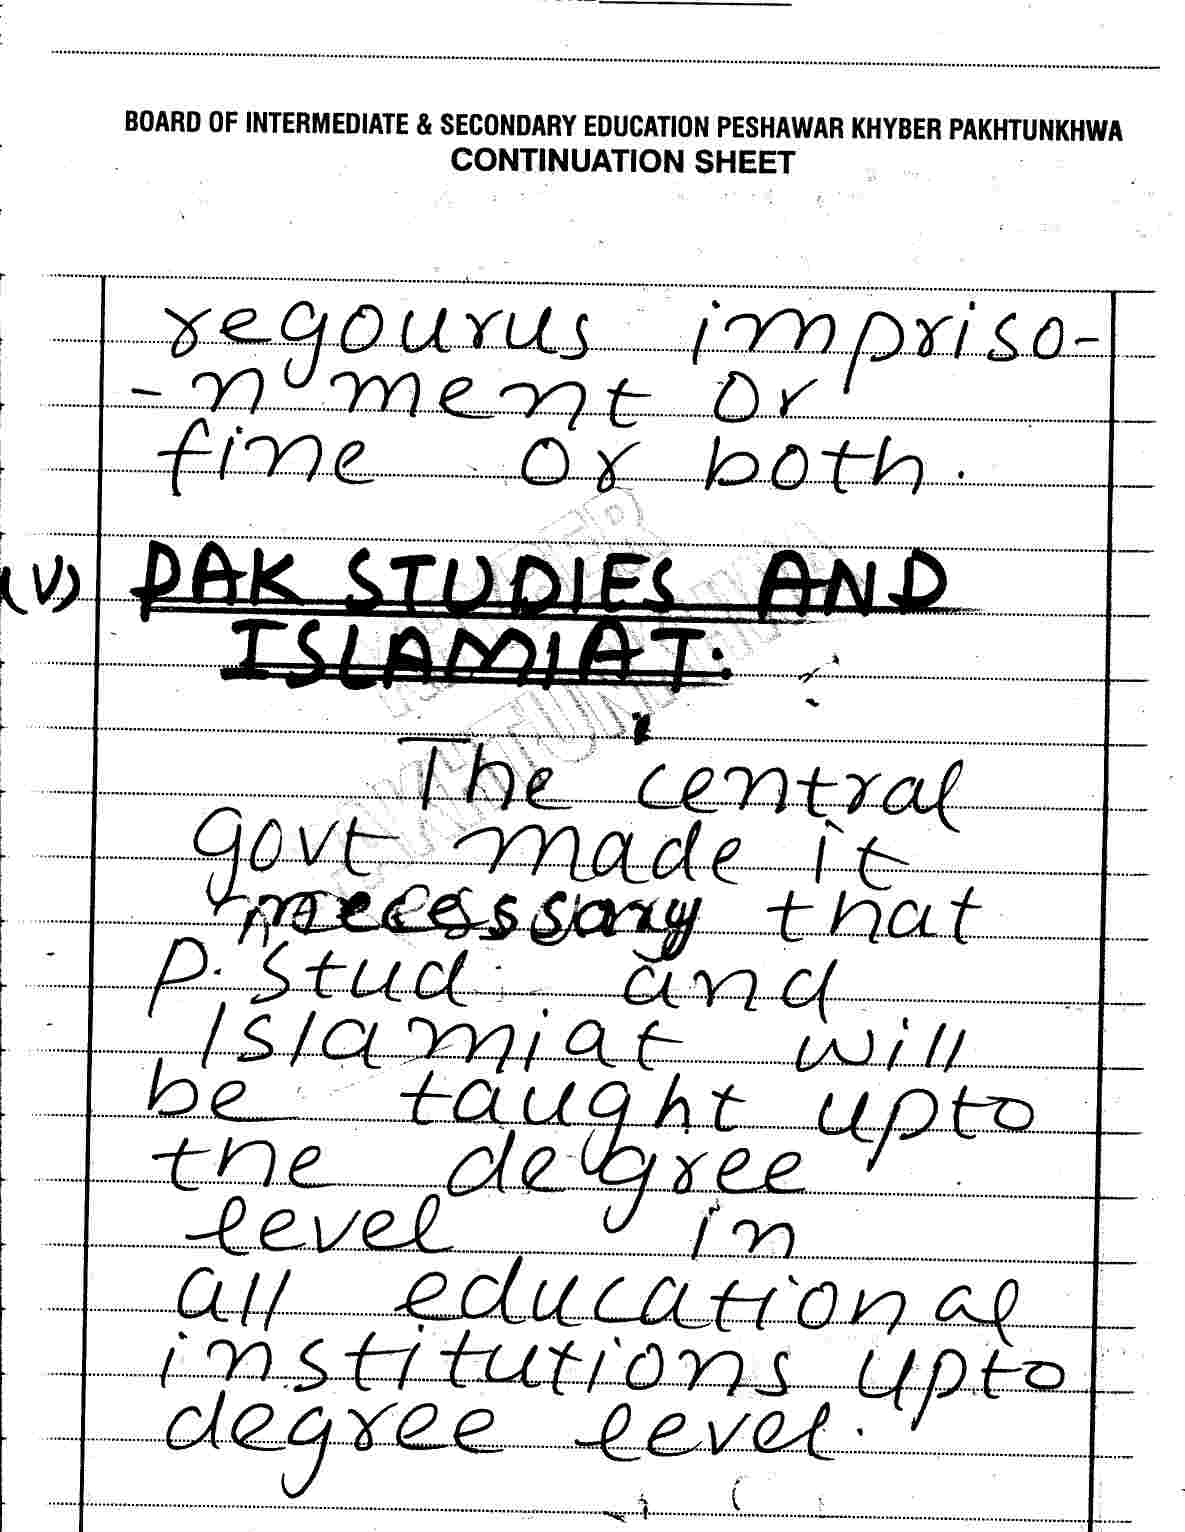 BOARD OF INTERMEDIATE & SECONDARY EDUCATION PESHAWAR KHYBER PAKHTUNKHWA
CONTINUATION SHEET
regourus impriso-
-nment or
fine or both.
(V) PAK STUDIES AND
ISLAMIAT:
The central
govt made it
necessary that
P.Stud and
Islamiat will
be taught upto
the degree
level in
all educational
institutions upto
degree level.